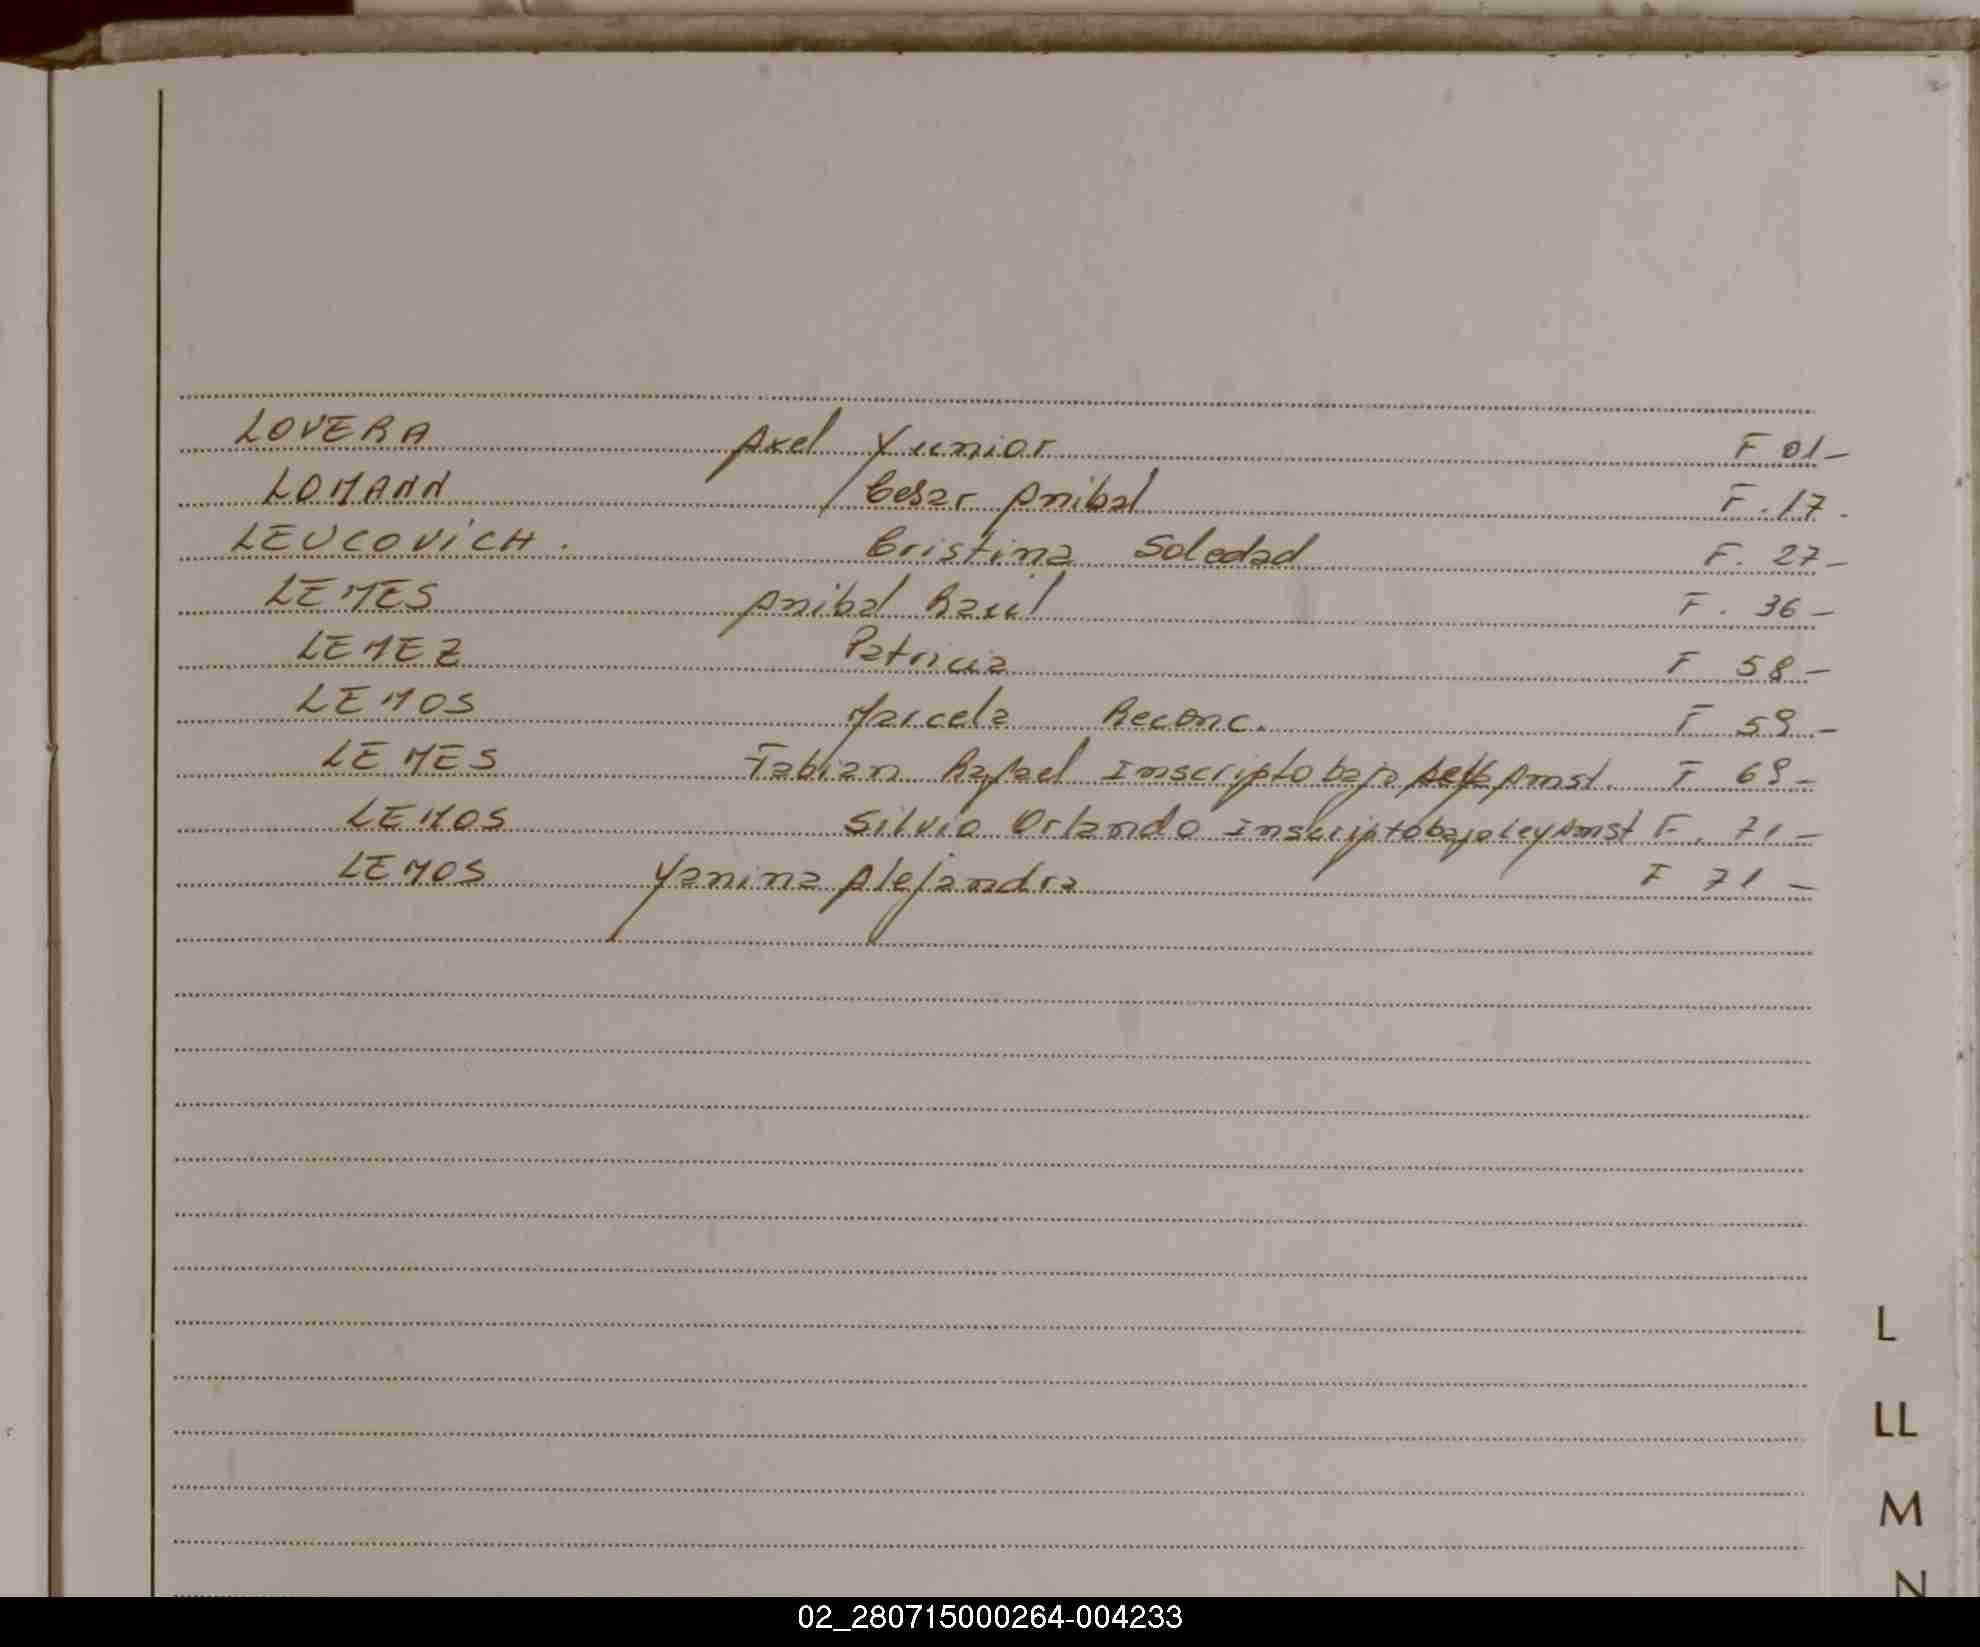 LOVERA Axel Yunior F 01-
LOMANN Cesar Anibal F. 17.
LEUCOVICH. Cristina Soledad F. 27-
LEMES Anibal Raul F. 36-
LEMEZ Patricia F 58-
LEMOS Marcela Reconc. F 59-
LEMES Fabian Rafael Inscripto bajo Amst. F 69-
LEMOS Silvio Orlando Inscripto bajo ley Amst F. 71-
LEMOS Yanina Alejandra F 71-
L
LL
M
N
02_280715000264-004233